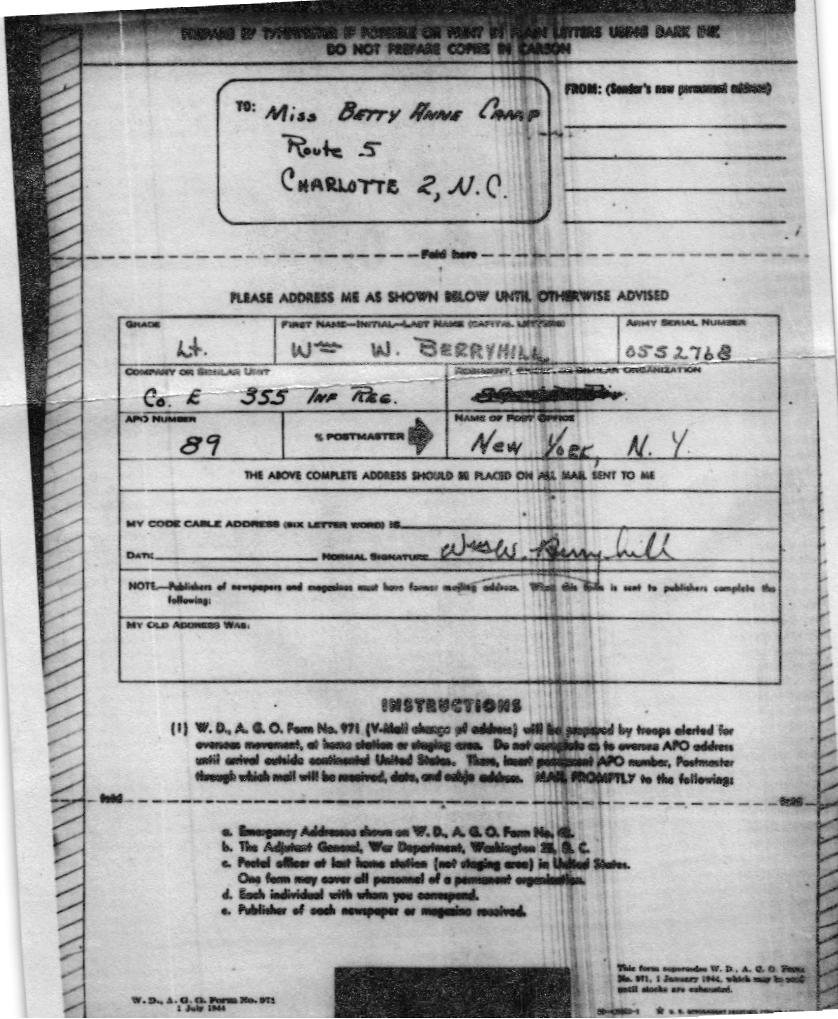 PREPARE BY TYPEWRITER IF POSSIBLE OR PRINT IN PLAIN LETTERS USING DARK INK
DO NOT PREPARE COPIES IN CARBON
TO: Miss BETTY ANNE CAMP
Route 5
CHARLOTTE 2, N.C.
FROM: (Sender's new permanent address)
Fold here
PLEASE ADDRESS ME AS SHOWN BELOW UNTIL OTHERWISE ADVISED
GRADE
Lt.
FIRST NAME—INITIAL—LAST NAME (CAPITAL LETTERS)
Wm W. BERRYHILL
ARMY SERIAL NUMBER
0552768
COMPANY OR SIMILAR UNIT
Co. E 355 INF REG.
OR SIMILAR ORGANIZATION
APO NUMBER
89
% POSTMASTER
NAME OF POST OFFICE
NEW YORK, N. Y.
THE ABOVE COMPLETE ADDRESS SHOULD BE PLACED ON ALL MAIL SENT TO ME
MY CODE CABLE ADDRESS (SIX LETTER WORD) IS
DATE
NORMAL SIGNATURE Wm W. Berryhill
NOTE.—Publishers of newspapers and magazines must have former mailing address. When this form is sent to publishers complete the
following:
MY OLD ADDRESS WAS:
INSTRUCTIONS
(1) W. D., A. G. O. Form No. 971 (V-Mail change of address) will be prepared by troops alerted for
overseas movement, at home station or staging area. Do not complete as to oversea APO address
until arrival outside continental United States. Then, insert permanent APO number, Postmaster
through which mail will be received, date, and cable address. MAIL PROMPTLY to the following:
Fold Fold
a. Emergency Addresses shown on W. D., A. G. O. Form No.
b. The Adjutant General, War Department, Washington 25, D. C.
c. Postal officer at last home station (not staging area) in United States.
One form may cover all personnel of a permanent organization.
d. Each individual with whom you correspond.
e. Publisher of each newspaper or magazine received.
W. D., A. G. O. Form No. 971
1 July 1944
This form supersedes W. D., A. G. O. Form
No. 971, 1 January 1944, which may be used
until stocks are exhausted.